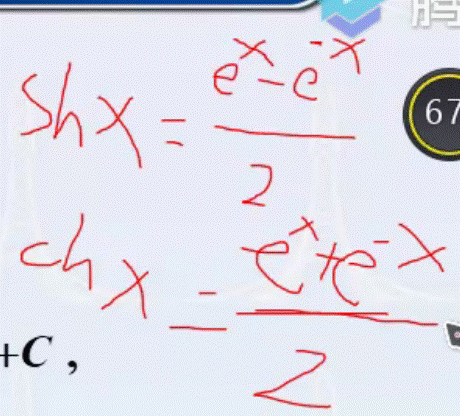 腾
sh x = (e^x - e^-x) / 2
67
ch x = (e^x + e^-x) / 2
+C ,